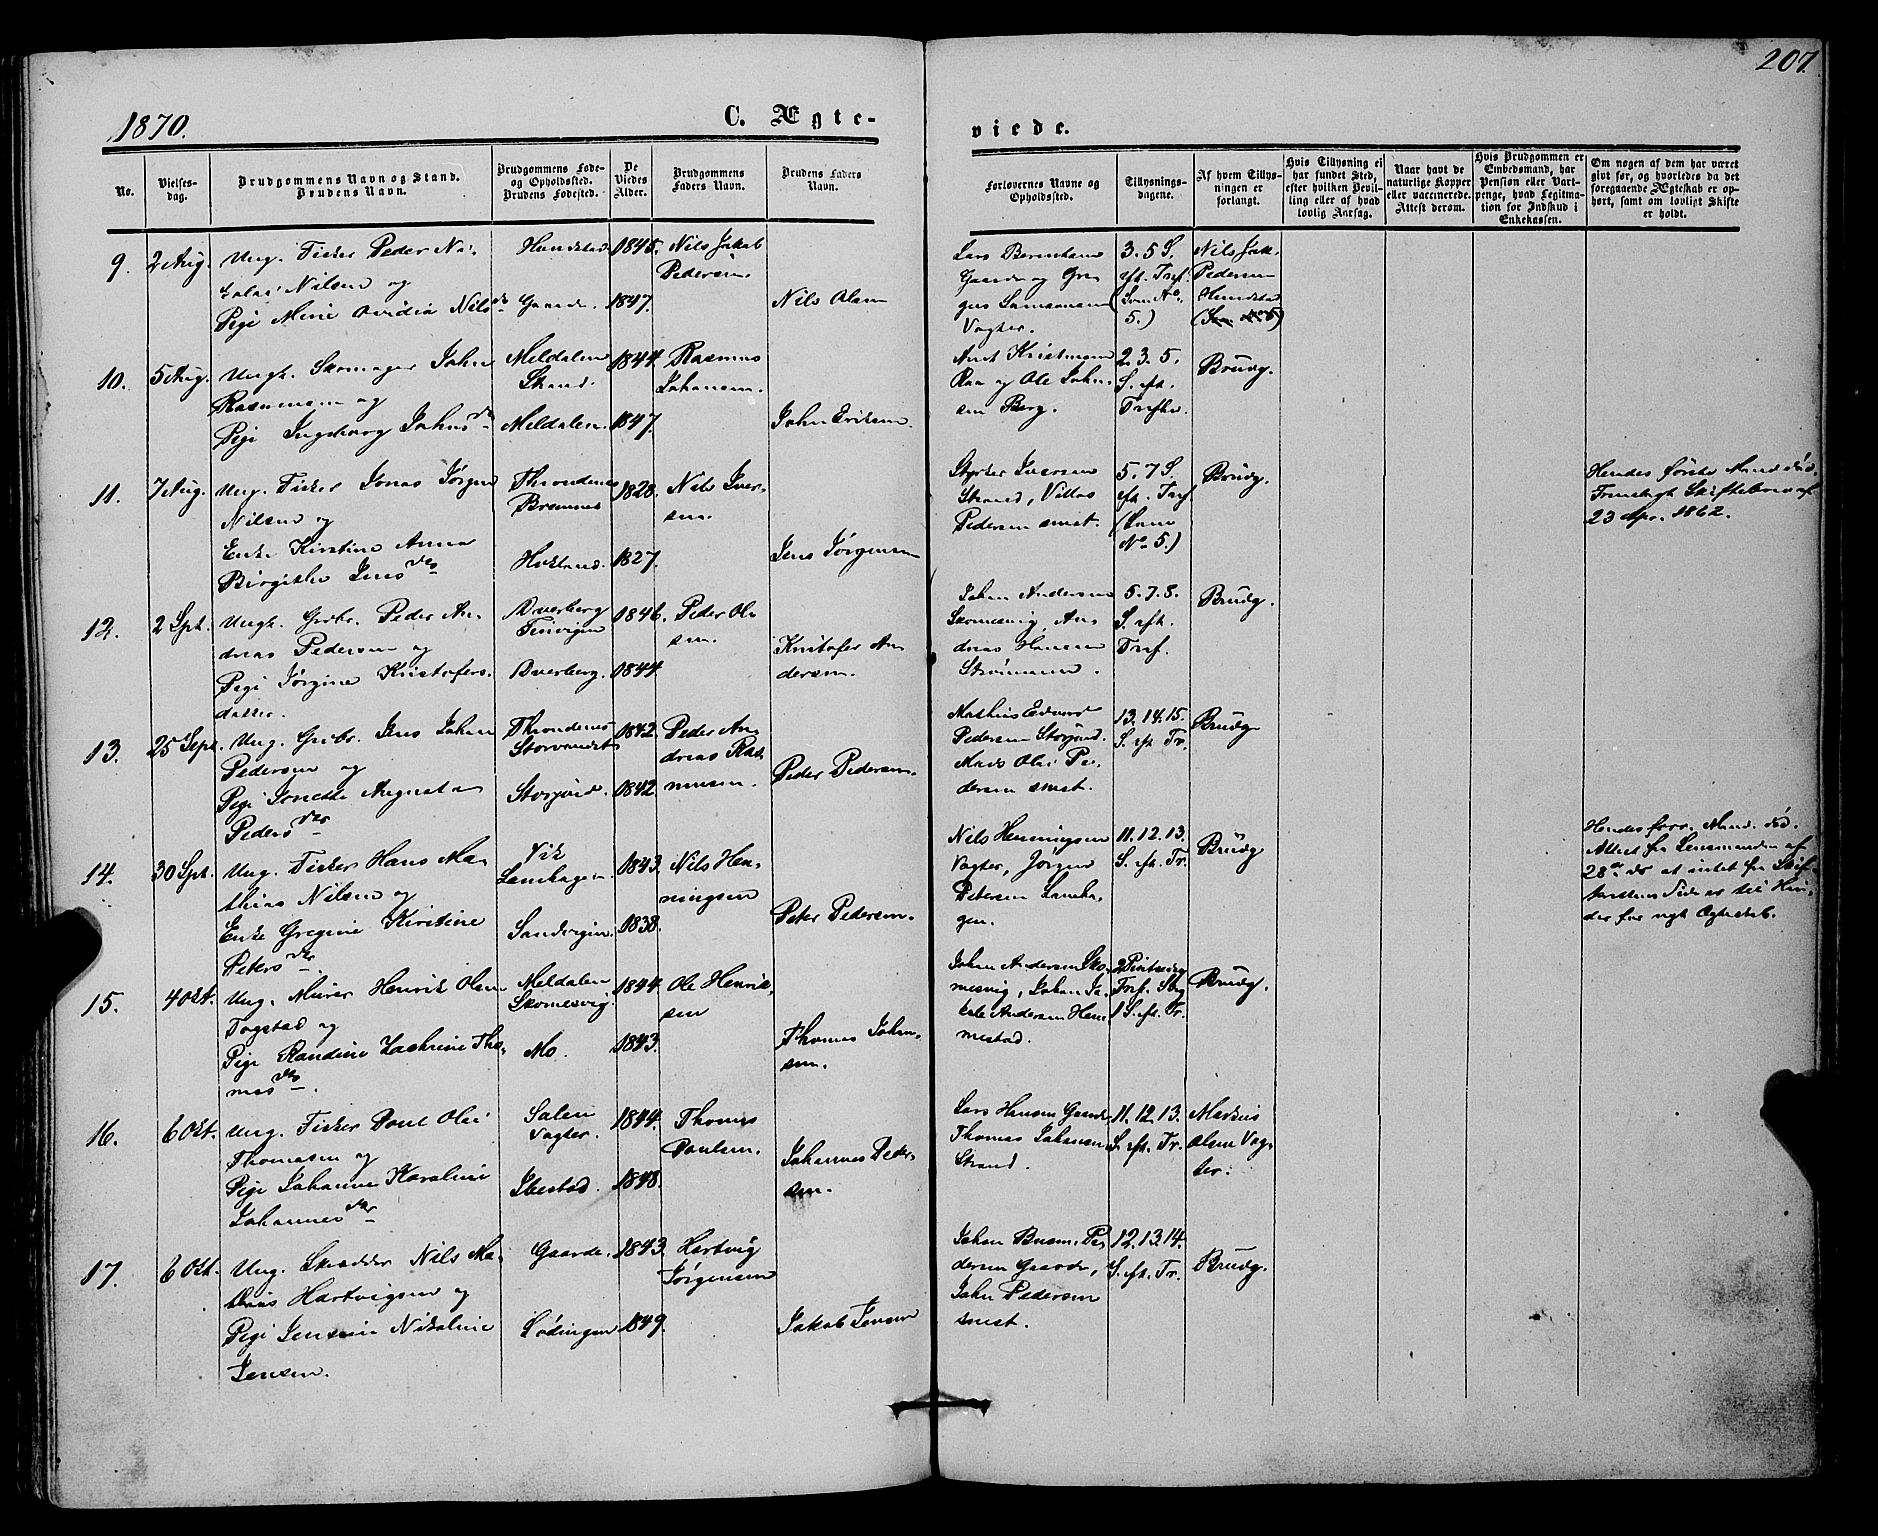 207.
1870.
C. Ægte-
viede.
No.
Vielses-
dag.
Brudgommens Navn og Stand.
Brudens Navn.
Brudgommens Føde-
og Opholdssted.
Brudens Fødested.
De
Viedes
Alder.
Brudgommens
Faders Navn.
Brudens Faders
Navn.
Forlovernes Navne og
Opholdssted.
Tillysnings-
dagene.
Af hvem Tillys-
ningen er
forlangt.
Hvis Tillysning ei
har fundet Sted,
efter hvilken Bevil-
ling eller af hvad
lovlig Aarsag.
Naar havt de
naturlige Kopper
eller vaccinerede.
Attest derom.
Hvis Brudgommen er
Embedsmand, har
Pension eller Vart-
penge, hvad Legitima-
tion for Indskud i
Enkekassen.
Om nogen af dem har været
gift før, og hvorledes da det
foregaaende Ægteskab er op-
hørt, samt om lovligt Skifte
er holdt.
9. 2 Aug.
Ung. Fisker Peder Ni-
Nilsen og
Pige Mine Ovidia Nilsdr
Hundstad
Gaarde.
1845.
1847.
Nils Jakob
Pedersen
Nils Olsen
Lars Berenham
Gaarde og Gre-
gus
Vogter.
3. 5 S.
eft. Tref.
(Som No.
5.)
Nils Jak.
Pedersen
Hundstad
(Som No 5)
10. 5 Aug.
Ungk. Skomager John
Rasmussen og
Pige Ingeborg Johnsdr
Meldalen
Strand.
Meldalen.
1844.
1847.
Rasmus
Johansen.
John Eriksen.
Arnt Kristensen
Raa og Ole John-
sen Berg.
2. 3. 5.
S. eft.
Trefh.
Brudg.
11. 7 Aug.
Ung. Fisker Jonas Jørgen
Nilsen og
Enke Kirstine Anna
Birgithe Jensdtr
Throndenes
Bremnes
Hokland.
1828.
1827.
Nils Iver-
sen.
Jens Jørgensen
Styrker Iversen
Strand, Villas
Pedersen smst.
5. 7 S.
eft. Tref
(Som
No 5.)
Brudg.
Hendes første Mand død.
Fremlagt Skiftebrev af
23 Apr. 1862.
12. 2 Spt.
Ungk. Grbr. Peder An-
dreas Pedersen og
Pige Jørgine Kristofers-
datter.
Dverberg
Finvigen
Dverberg.
1846.
1844.
Peder Ol-
sen.
Kristofer An-
dersen.
Johan Andersen
Skomesvig, An-
dreas Hansen
Strømmen.
5. 7. 8.
S. eft.
Tref.
Brudg.
13. 25 Sept.
Ung. Grbr. Jens Johan
Pedersen og
Pige Jonette Augusta
Pedersdtr
Throndenes
Storvandet
Storjord.
1842.
1842.
Peder An-
dreas Ras-
mussen.
Peder Pedersen.
Mathias Edvard
Pedersen Storjord.
Mads Olai Pe-
dersen smst.
13. 14. 15.
S. eft. Tr.
Brudg
14. 30 Spt.
Ung. Fisker Hans Ma-
thias Nilsen og
Enke Gregine Kirstine
Petersdtr
Vik
Lanehagen
Sandvigen.
1843.
1838.
Nils Hen-
ningsen
Peter Pedersen.
Nils Henningsen
Vogter, Jørgen
Petersen Laneha-
gen.
11. 12. 13.
S. eft. Tr.
Brudg
Hendes forr. Mand død.
Attest fra Lensmanden af
28de ds at intet fra Skif-
teretens Side er til Hin-
der for nyt Ægteskab.
15. 4 Okt.
Ung. Murer Henrik Olsen
Fogstad og
Pige Randine Zachrine Tho-
masdtr.
Meldalen
Skomesvig.
Mo.
1844.
1843.
Ole Henrik-
sen
Thomas John-
sen.
Johan Andersen Sko-
mesvig, Johan Ja-
Andersen Hem-
mestad.
Tref.
1 S. eft. Tr.
Brudg.
16. 6 Okt.
Ung. Fisker Poul Olai
Thomassen og
Pige Johanne Karoline
Johannesdtr
Salen
Vogter.
Ibestad.
1844.
1848.
Thomas
Poulsen.
Johannes Peder-
sen.
Lars Hansen Gaarde
Thomas Johansen
Strand.
11. 12. 13.
S. eft. Tr.
Markus
Olsen Vog-
ter.
17. 6 Okt.
Ung. Skrædder Nils Ma-
thias Hartvigsen og
Pige Jensine Nikoline
Jensen.
Gaarde.
Lødingen
1843.
1849.
Hartvig
Jørgensen
Jakob Jensen
Johan Pe-
dersen Gaarde,
John Pedersen
smst.
12. 13. 14.
S. eft. Tr.
Brudg.